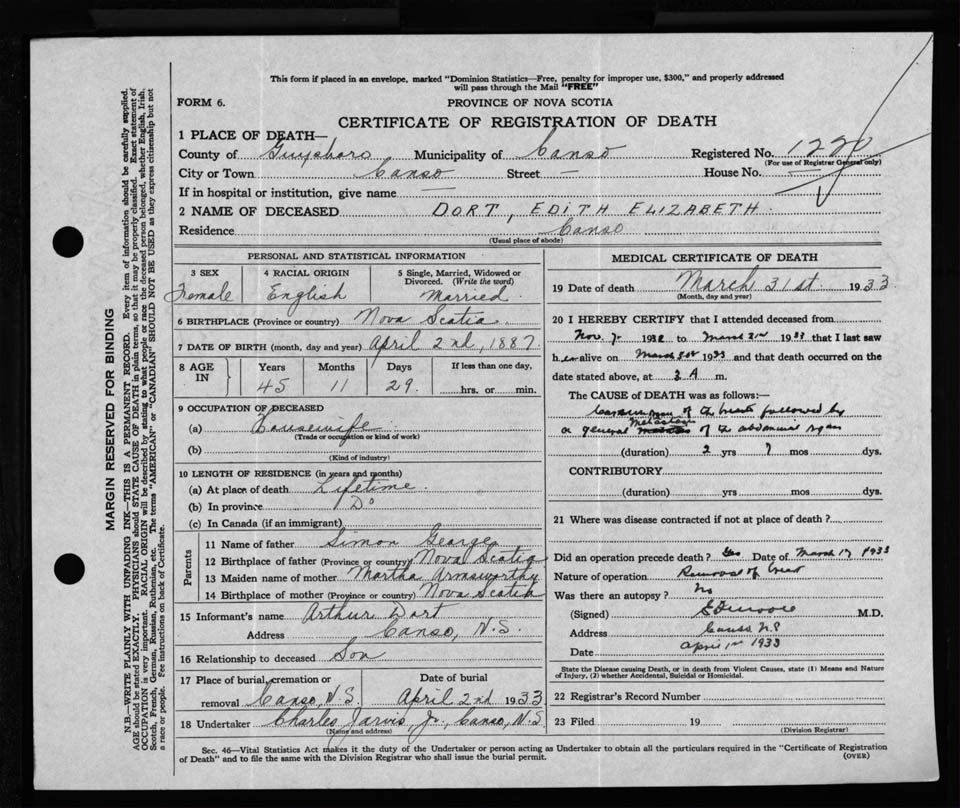 This form if placed in an envelope, marked "Dominion Statistics—Free, penalty for improper use, $300," and properly addressed
will pass through the Mail "FREE"
FORM 6.
PROVINCE OF NOVA SCOTIA
CERTIFICATE OF REGISTRATION OF DEATH
1 PLACE OF DEATH—
County of Guysboro Municipality of Canso Registered No. 1220
(For use of Registrar General only)
City or Town Canso Street — House No. —
If in hospital or institution, give name —
2 NAME OF DECEASED DORT, EDITH ELIZABETH.
Residence Canso
(Usual place of abode)
PERSONAL AND STATISTICAL INFORMATION
3 SEX 4 RACIAL ORIGIN 5 Single, Married, Widowed or
Divorced. (Write the word)
Female English Married.
6 BIRTHPLACE (Province or country) Nova Scotia.
7 DATE OF BIRTH (month, day and year) April 2nd, 1887
8 AGE IN Years Months Days If less than one day,
45 11 29. hrs. or min.
9 OCCUPATION OF DECEASED
(a) Housewife
(Trade or occupation or kind of work)
(b)
(Kind of industry)
10 LENGTH OF RESIDENCE (in years and months)
(a) At place of death Lifetime.
(b) In province Do
(c) In Canada (if an immigrant)
Parents
11 Name of father Simon George
12 Birthplace of father (Province or country) Nova Scotia
13 Maiden name of mother Martha Armsworthy
14 Birthplace of mother (Province or country) Nova Scotia
15 Informant's name Arthur Dort
Address Canso, N.S.
16 Relationship to deceased Son
17 Place of burial, cremation or Date of burial
removal Canso, N.S. April 2nd 1933
18 Undertaker Charles Jarvis Jr, Canso, N.S.
(Name and address)
MEDICAL CERTIFICATE OF DEATH
19 Date of death March 31st 1933
(Month, day and year)
20 I HEREBY CERTIFY that I attended deceased from
Nov. 1932 to March 1933 that I last saw
her alive on March 1933 and that death occurred on the
date stated above, at 3 A m.
The CAUSE of DEATH was as follows:—
of the breast followed by
a general of the abdominal organs
(duration) 2 yrs 7 mos dys.
CONTRIBUTORY
(duration) yrs mos dys.
21 Where was disease contracted if not at place of death?
Did an operation precede death? Yes Date of March 17 1933
Nature of operation Removal of breast
Was there an autopsy? No
(Signed) M.D.
Address Canso N.S
Date April 1st 1933
State the Disease causing Death, or in death from Violent Causes, state (1) Means and Nature
of Injury, (2) whether Accidental, Suicidal or Homicidal.
22 Registrar's Record Number
23 Filed 19
(Division Registrar)
Sec. 46—Vital Statistics Act makes it the duty of the Undertaker or person acting as Undertaker to obtain all the particulars required in the "Certificate of Registration
of Death" and to file the same with the Division Registrar who shall issue the burial permit. (OVER)
MARGIN RESERVED FOR BINDING
N.B.—WRITE PLAINLY WITH UNFADING INK—THIS IS A PERMANENT RECORD. Every item of information should be carefully supplied.
AGE should be stated EXACTLY. PHYSICIANS should STATE CAUSE OF DEATH in plain terms, so that it may be properly classified. Exact statement of
OCCUPATION is very important. RACIAL ORIGIN will be described by stating to what people or race the deceased person belonged, whether English, Irish,
Scotch, French, German, Russian, Ruthenian, etc. The terms "AMERICAN" or "CANADIAN" SHOULD NOT BE USED as they express citizenship but not
a race or people. See instructions on back of Certificate.